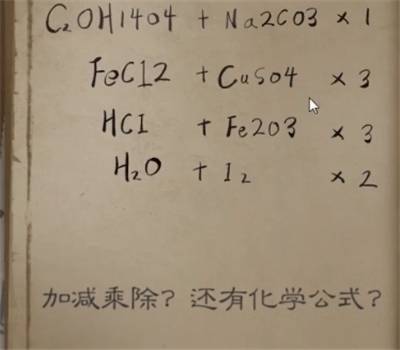 C₂OH1404 + Na2CO3 × 1
FeCl2 + CuSO4 × 3
HCl + Fe2O3 × 3
H₂O + I₂ × 2
加减乘除？还有化学公式？